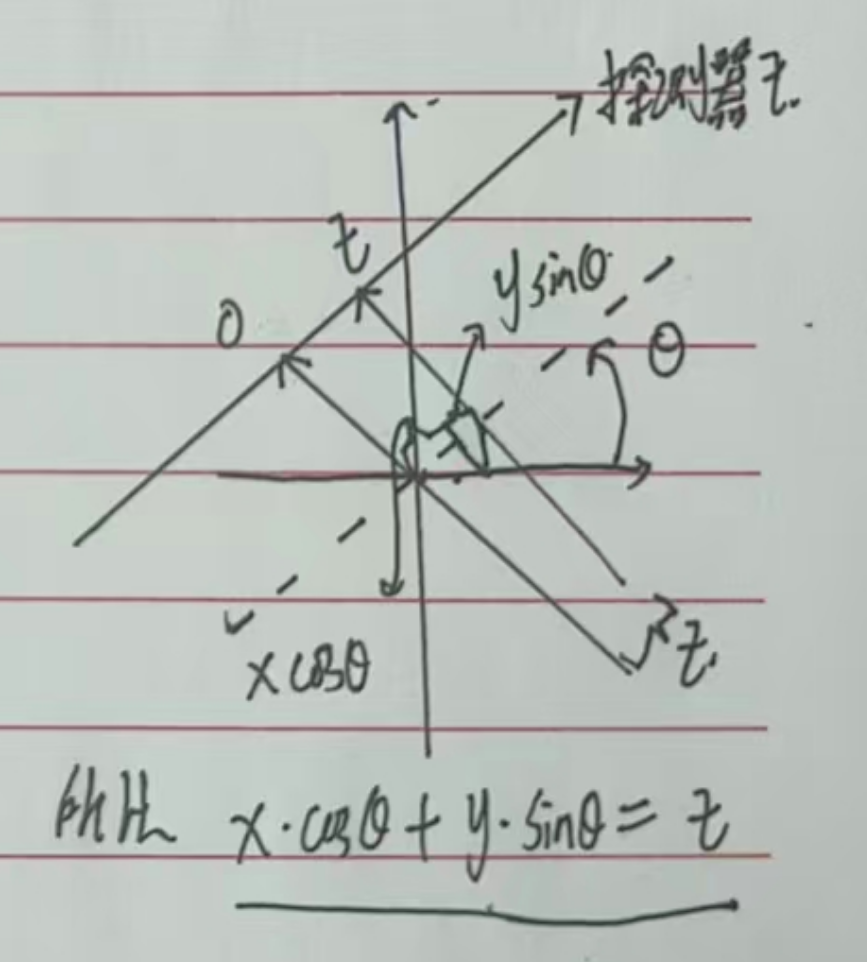 探测器 t.
t
y sinθ
0
θ
x cosθ
t.
所以 x·cosθ + y·sinθ = t